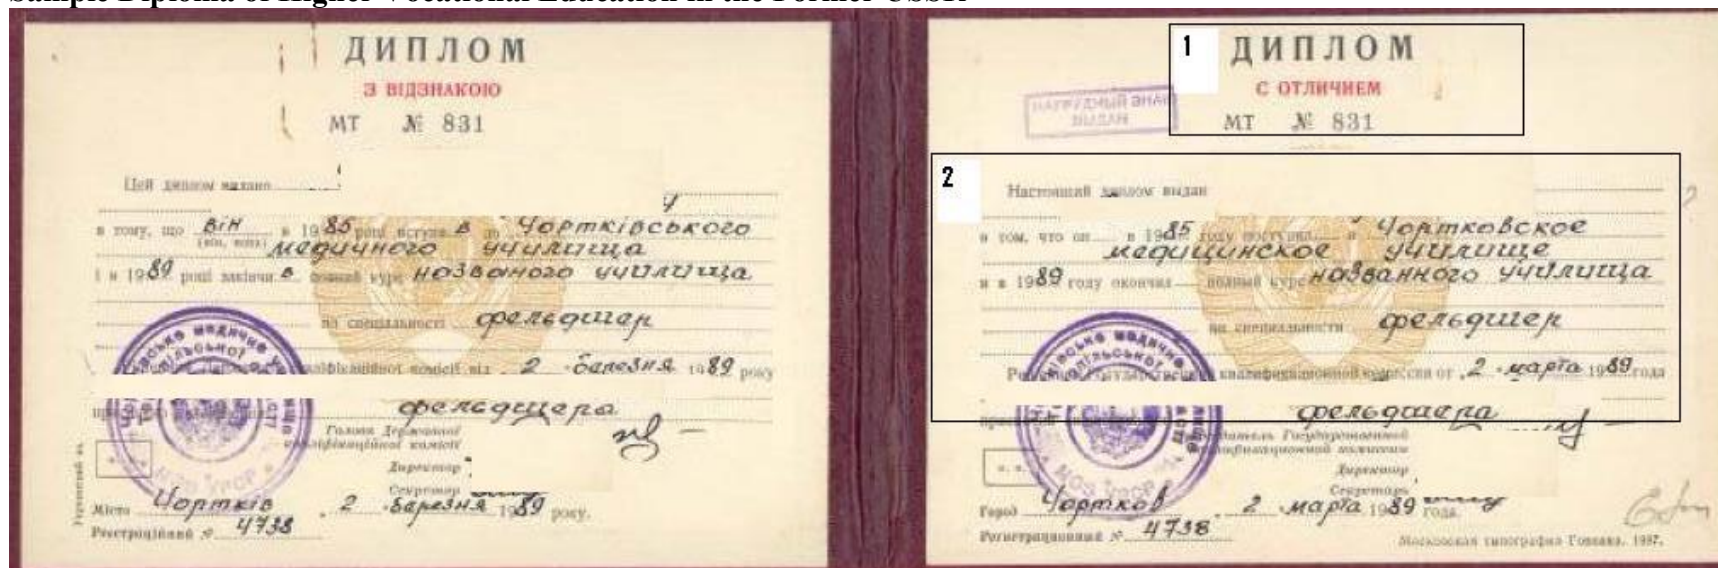 Sample Diploma of Higher Vocational Education in the Former USSR
ДИПЛОМ
З ВІДЗНАКОЮ
МТ № 831
Цей диплом видано
в тому, що він в 1985 році вступив до Чортківського
(він, вона)
медичного училища
і в 1989 році закінчив повний курс названого училища
по спеціальності фельдшер
кваліфікаційної комісії від 2 березня 1989 року
фельдшера
Голова Державної
кваліфікаційної комісії
Директор
Секретар
Місто Чортків 2 березня 1989 року.
Реєстраційний № 4738
1
ДИПЛОМ
С ОТЛИЧИЕМ
МТ № 831
НАГРУДНЫЙ ЗНАК
ВЫДАН
2
Настоящий диплом выдан
в том, что он в 1985 году поступил в Чортковское
медицинское училище
и в 1989 году окончил полный курс названного училища
по специальности фельдшер
квалификационной комиссии от 2 марта 1989 года
фельдшера
Государственной
квалификационной комиссии
Директор
Секретарь
Город Чортков 2 марта 1989 года.
Регистрационный № 4738
Московская типография Гознака. 1987.